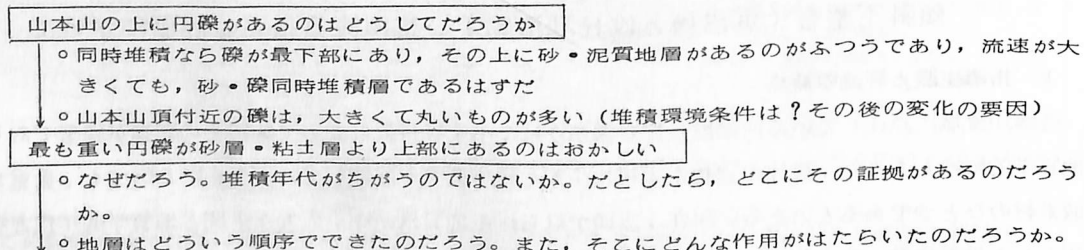 山本山の上に円礫があるのはどうしてだろうか
○同時堆積なら礫が最下部にあり，その上に砂・泥質地層があるのがふつうであり，流速が大
きくても，砂・礫同時堆積層であるはすだ
○山本山頂付近の礫は，大きくて丸いものが多い（堆積環境条件は？その後の変化の要因）
最も重い円礫が砂層・粘土層より上部にあるのはおかしい
○なぜだろう。堆積年代がちがうのではないか。だとしたら，どこにその証拠があるのだろう
か。
○地層はどういう順序でできたのだろう。また，そこにどんな作用がはたらいたのだろうか。